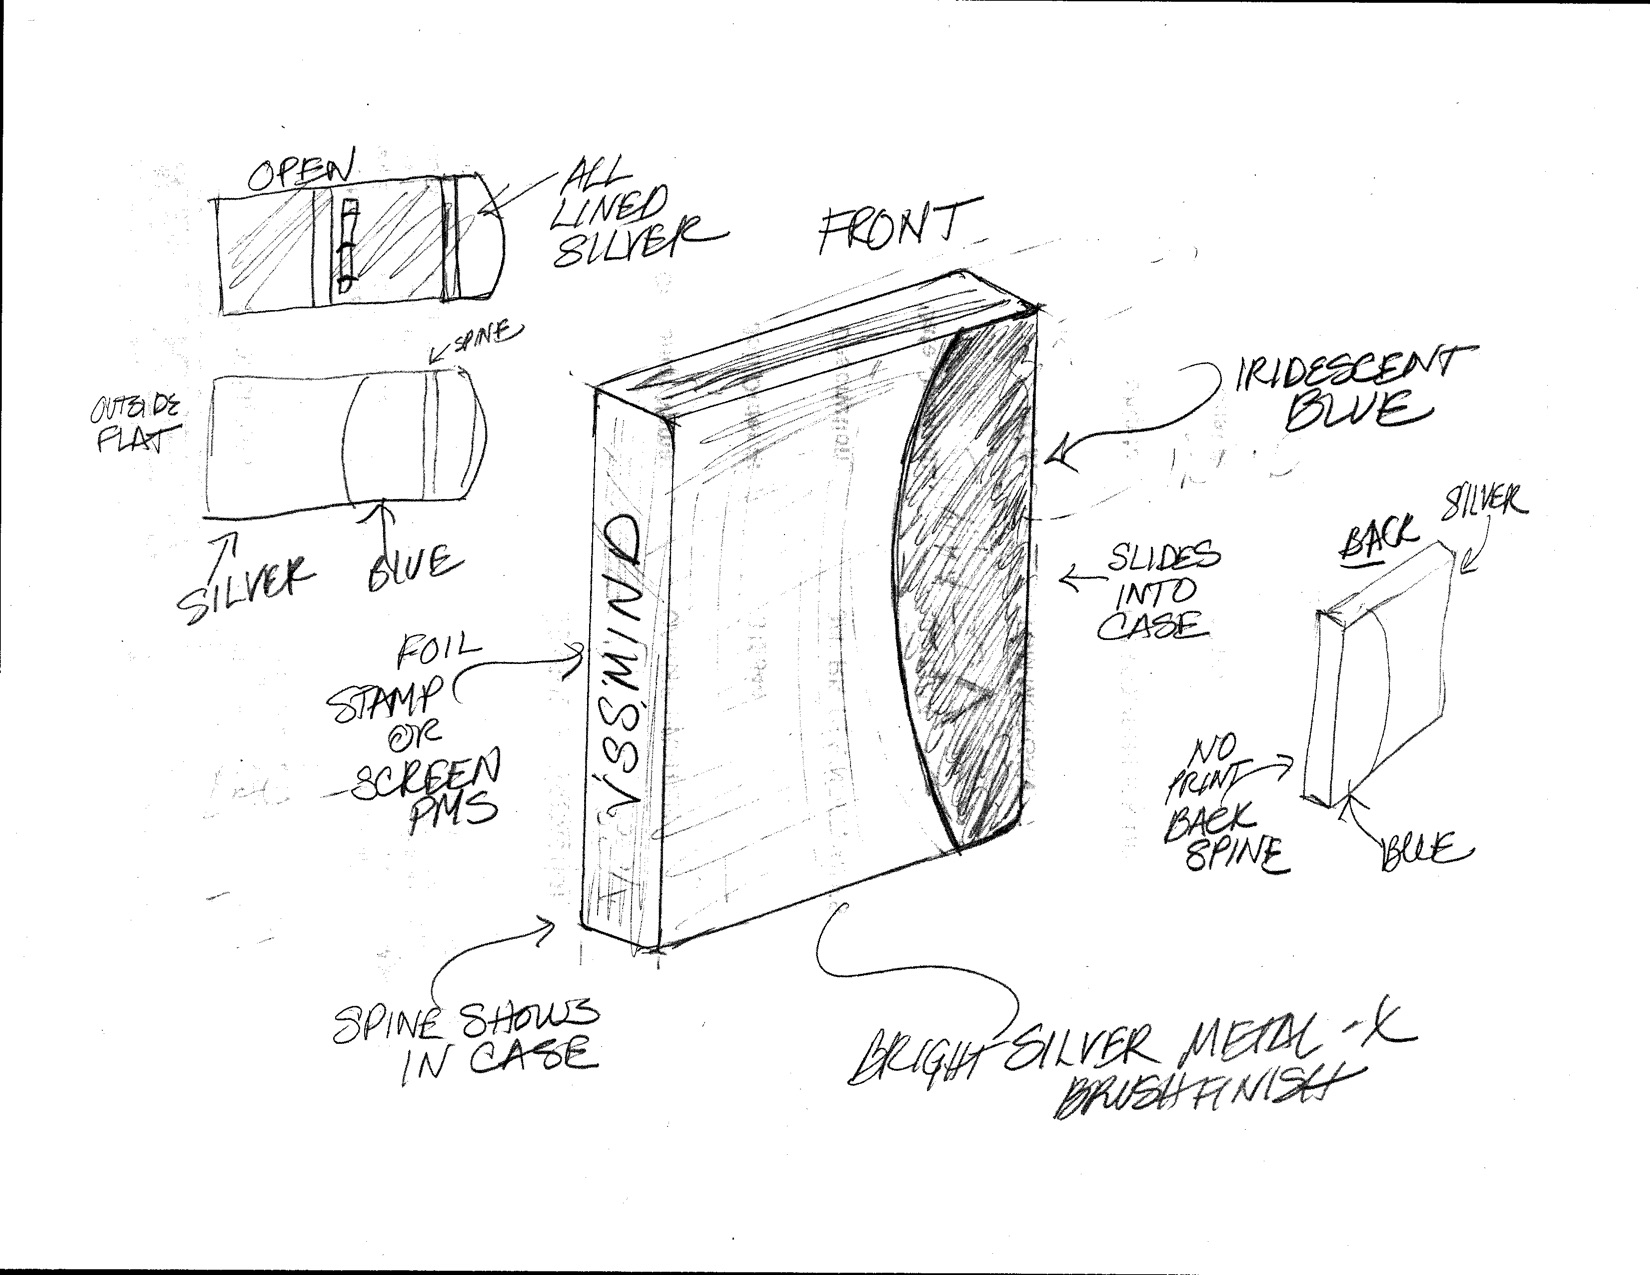 OPEN
ALL
LINED
SILVER
FRONT
SPINE
OUTSIDE
FLAT
SILVER
BLUE
IRIDESCENT
BLUE
SLIDES
INTO
CASE
BACK
SILVER
FOIL
STAMP
OR
SCREEN
PMS
VISSIMIND
NO
PRINT
BACK
SPINE
BLUE
SPINE SHOWS
IN CASE
BRIGHT SILVER METAL-X
BRUSH FINISH